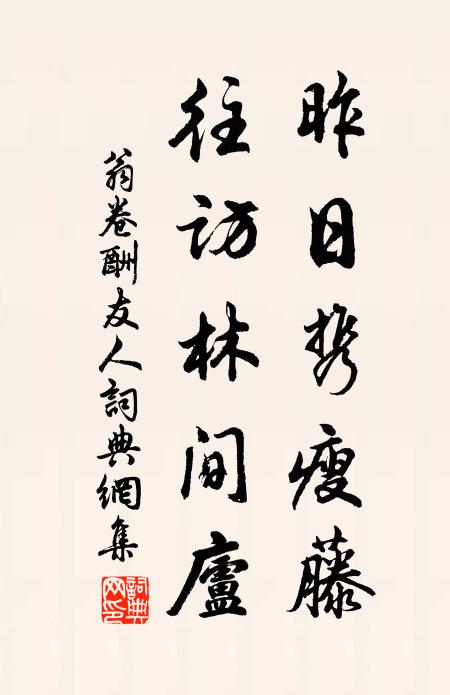 昨日携瘦藤
往访林间廬
翁卷酬友人詞典網集
詞典網印